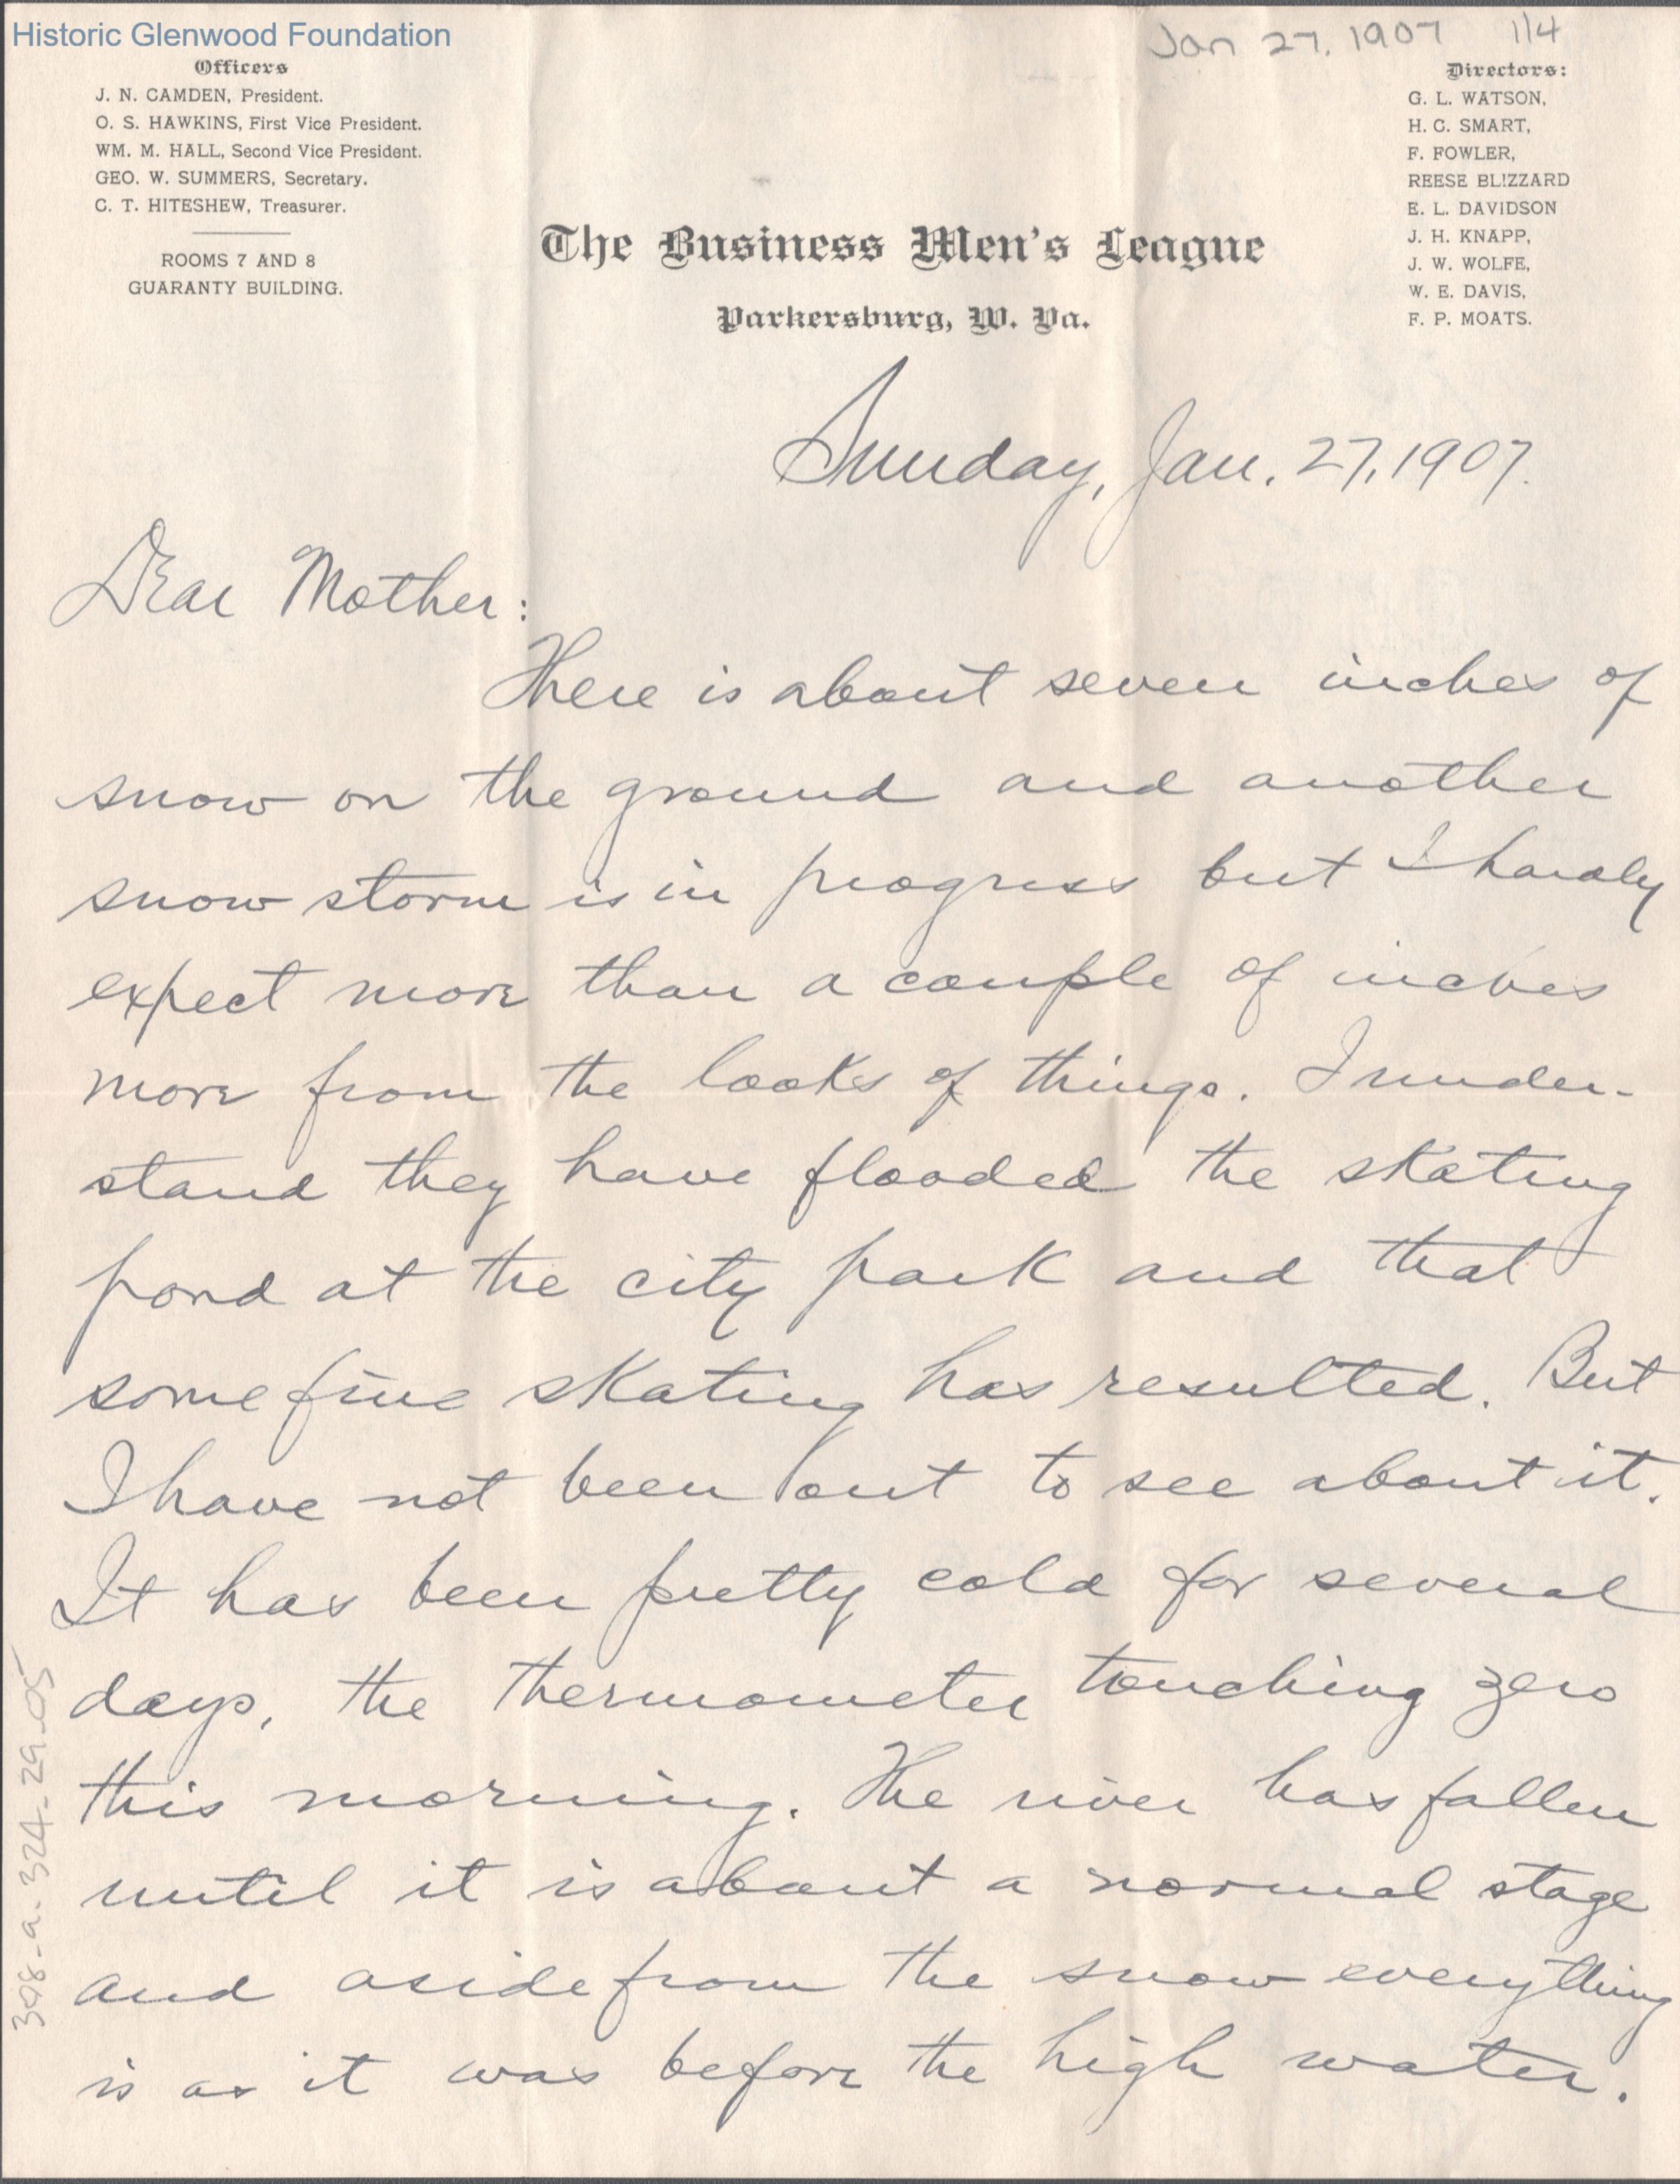 Historic Glenwood Foundation
Jan 27. 1907 1/4
Officers
J. N. CAMDEN, President.
O. S. HAWKINS, First Vice President.
WM. M. HALL, Second Vice President.
GEO. W. SUMMERS, Secretary.
C. T. HITESHEW, Treasurer.
ROOMS 7 AND 8
GUARANTY BUILDING.
Directors:
G. L. WATSON,
H. C. SMART,
F. FOWLER,
REESE BLIZZARD
E. L. DAVIDSON
J. H. KNAPP,
J. W. WOLFE,
W. E. DAVIS,
F. P. MOATS.
The Business Men's League
Parkersburg, W. Va.
Sunday, Jan. 27, 1907.
Dear Mother:
There is about seven inches of
snow on the ground and another
snow storm is in progress but I hardly
expect more than a couple of inches
more from the looks of things. I under-
stand they have flooded the skating
pond at the city park and that
some fine skating has resulted. But
I have not been out to see about it.
It has been pretty cold for several
days, the thermometer touching zero
this morning. The river has fallen
until it is about a normal stage
and aside from the snow everything
is as it was before the high water.
398-a. 324-29.05